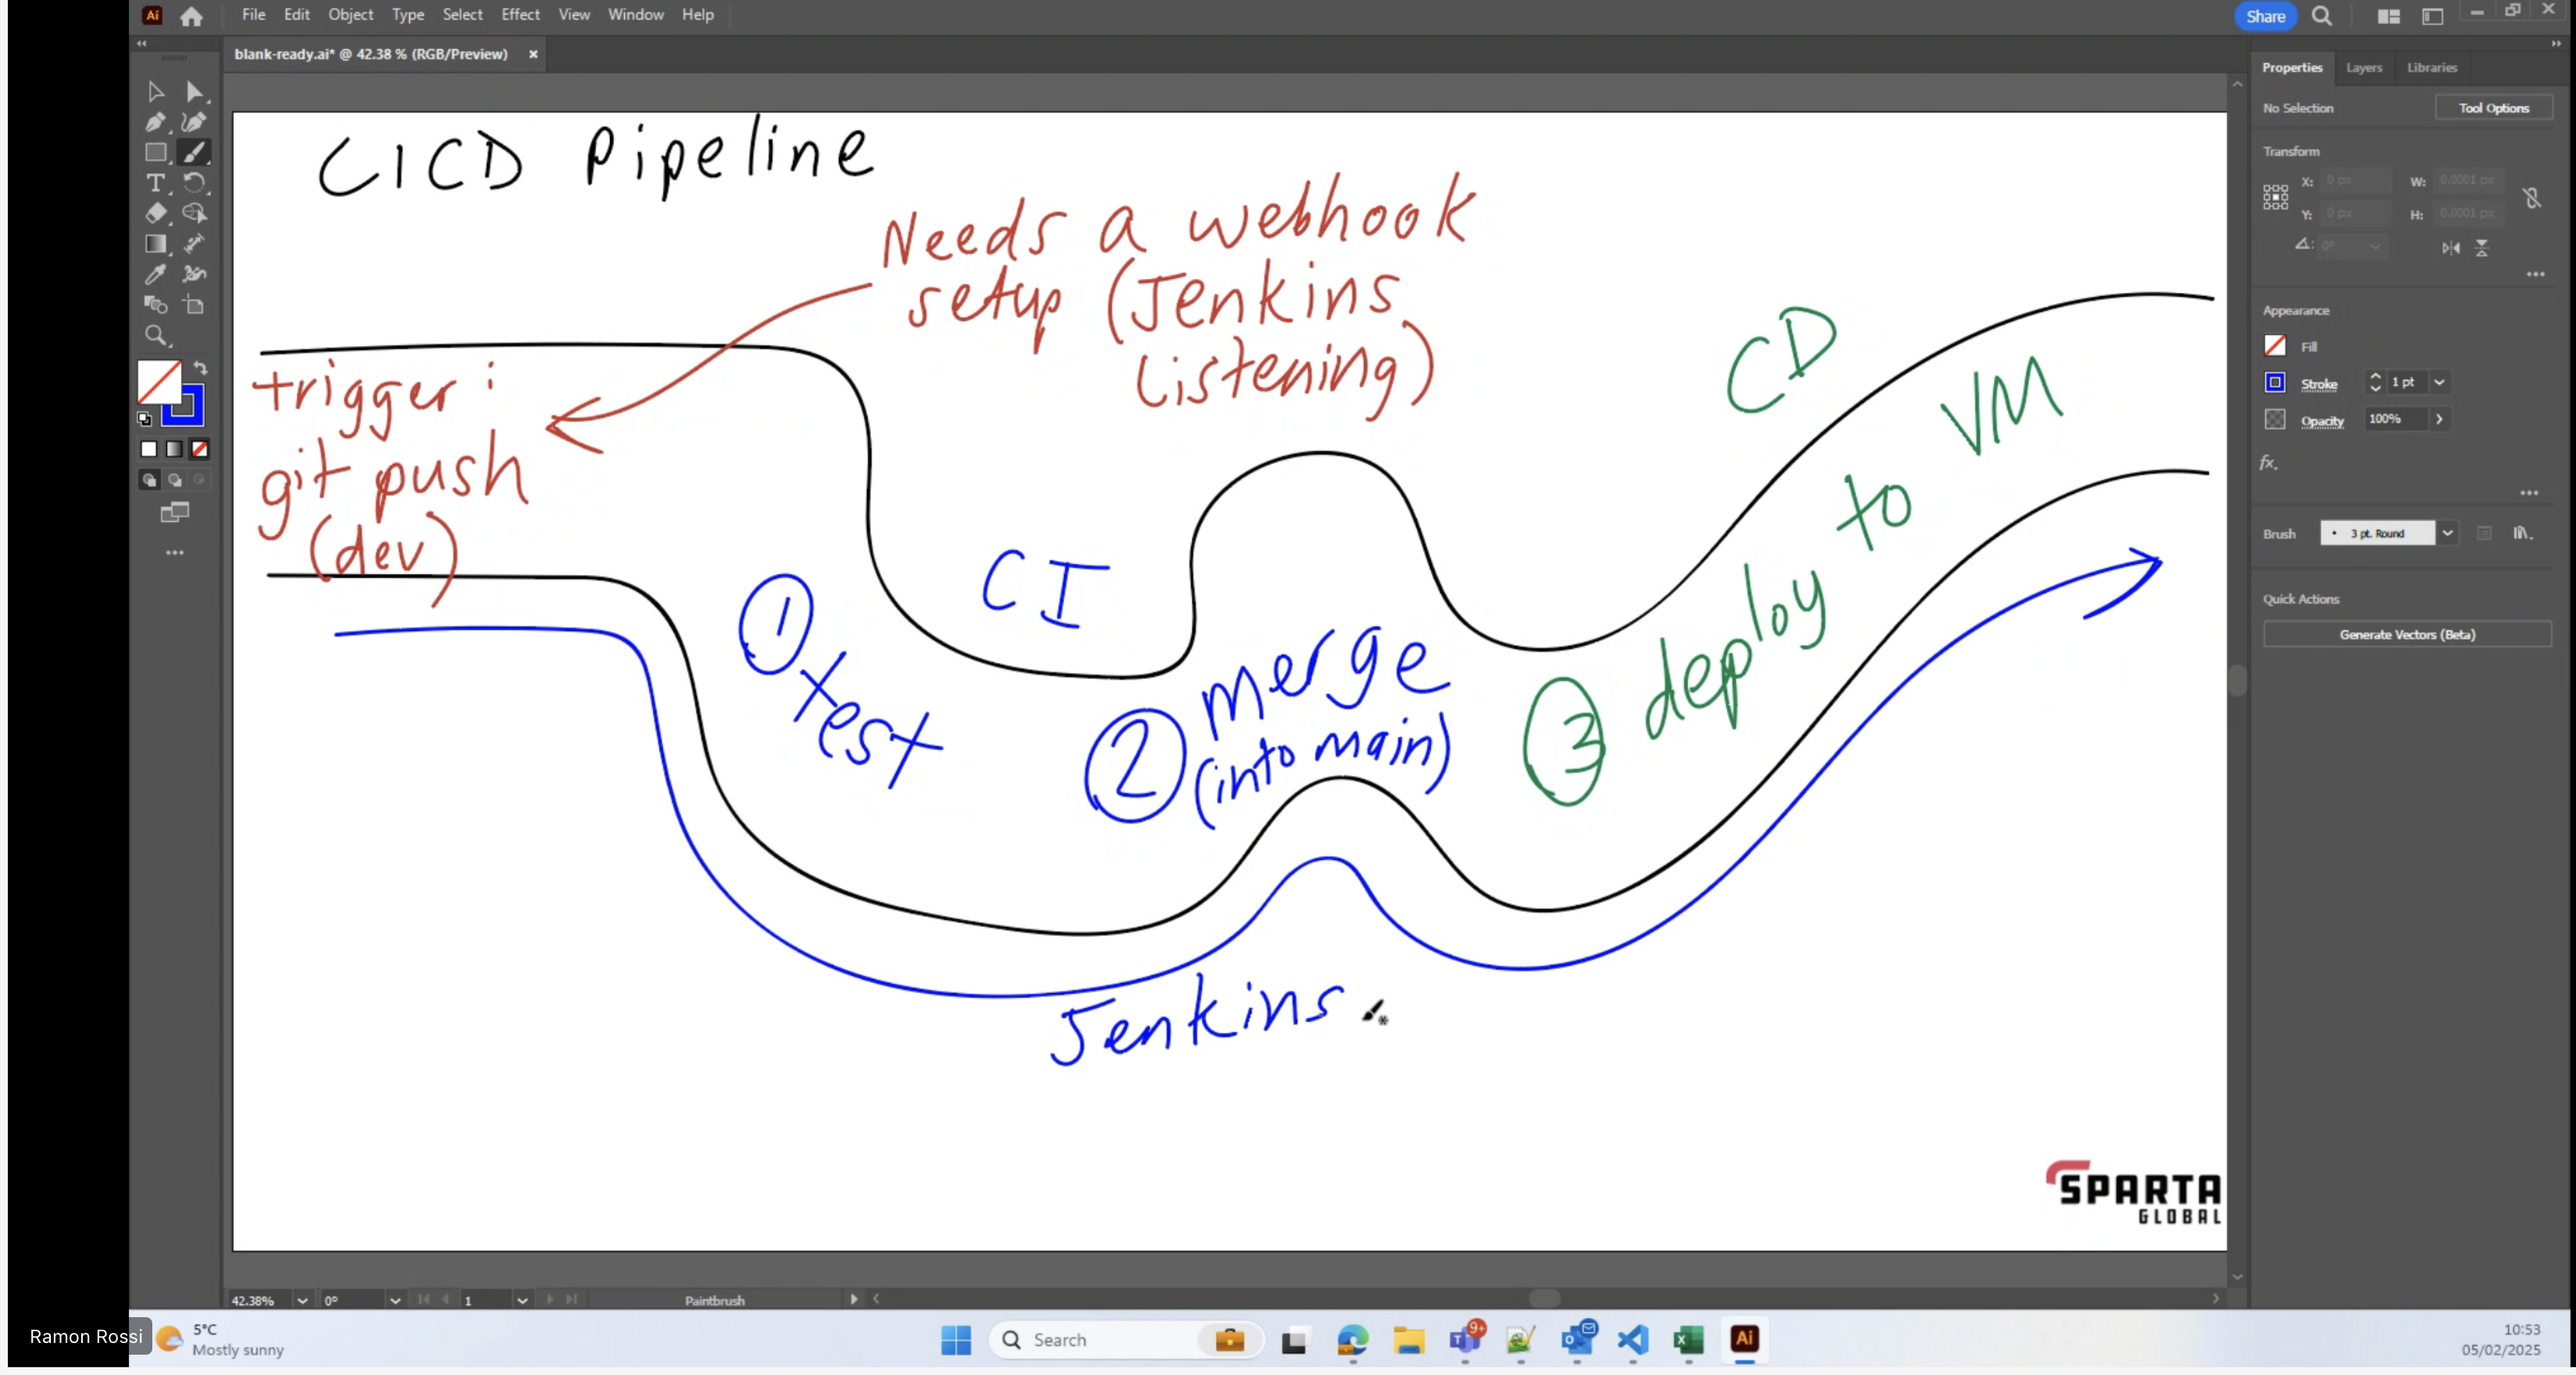 Ai File Edit Object Type Select Effect View Window Help Share
blank-ready.ai* @ 42.38 % (RGB/Preview) ×
CICD Pipeline
Needs a webhook
setup (Jenkins
Listening)
trigger:
git push
(dev)
CI
① test
② merge
(into main)
CD
③ deploy to VM
Jenkins
SPARTA
GLOBAL
Properties Layers Libraries
No Selection Tool Options
Transform
X: 0 px W: 0.0001 px
Y: 0 px H: 0.0001 px
0°
Appearance
Fill
Stroke 1 pt
Opacity 100%
fx.
Brush 3 pt. Round
Quick Actions
Generate Vectors (Beta)
42.38% 0° 1 Paintbrush
Ramon Rossi
5°C
Mostly sunny
Search
9+
Ai
10:53
05/02/2025